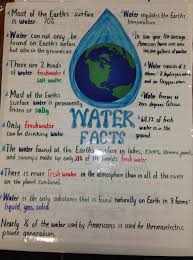 • Most of the Earth's surface
is water 70%
• Water can only be
found on Earth's surface
but also in the ground
• There are 2 kinds
of water: freshwater &
salt water
• Most of the Earth's
surface water is permanently
frozen or salty
• Only freshwater
can be drinking water
• Water regulates the Earth's
temperature.
• In one year, the average
American home uses
• Water consists of
2 elements
2 Hydrogen atoms
• Water freezes at
zero degrees Celsius
68.7% of
fresh water is in
WATER
FACTS
• The water found at the Earth's surface in lakes, rivers, streams, ponds,
and swamps make up only .3% of the world's fresh water
• There is more freshwater in the atmosphere than in all of the rivers
on the planet combined.
• Water is the only substance that is found naturally on Earth in 3 forms:
liquid, gas, solid
Nearly ½ of the water used by Americans is used for thermoelectric
power generation.